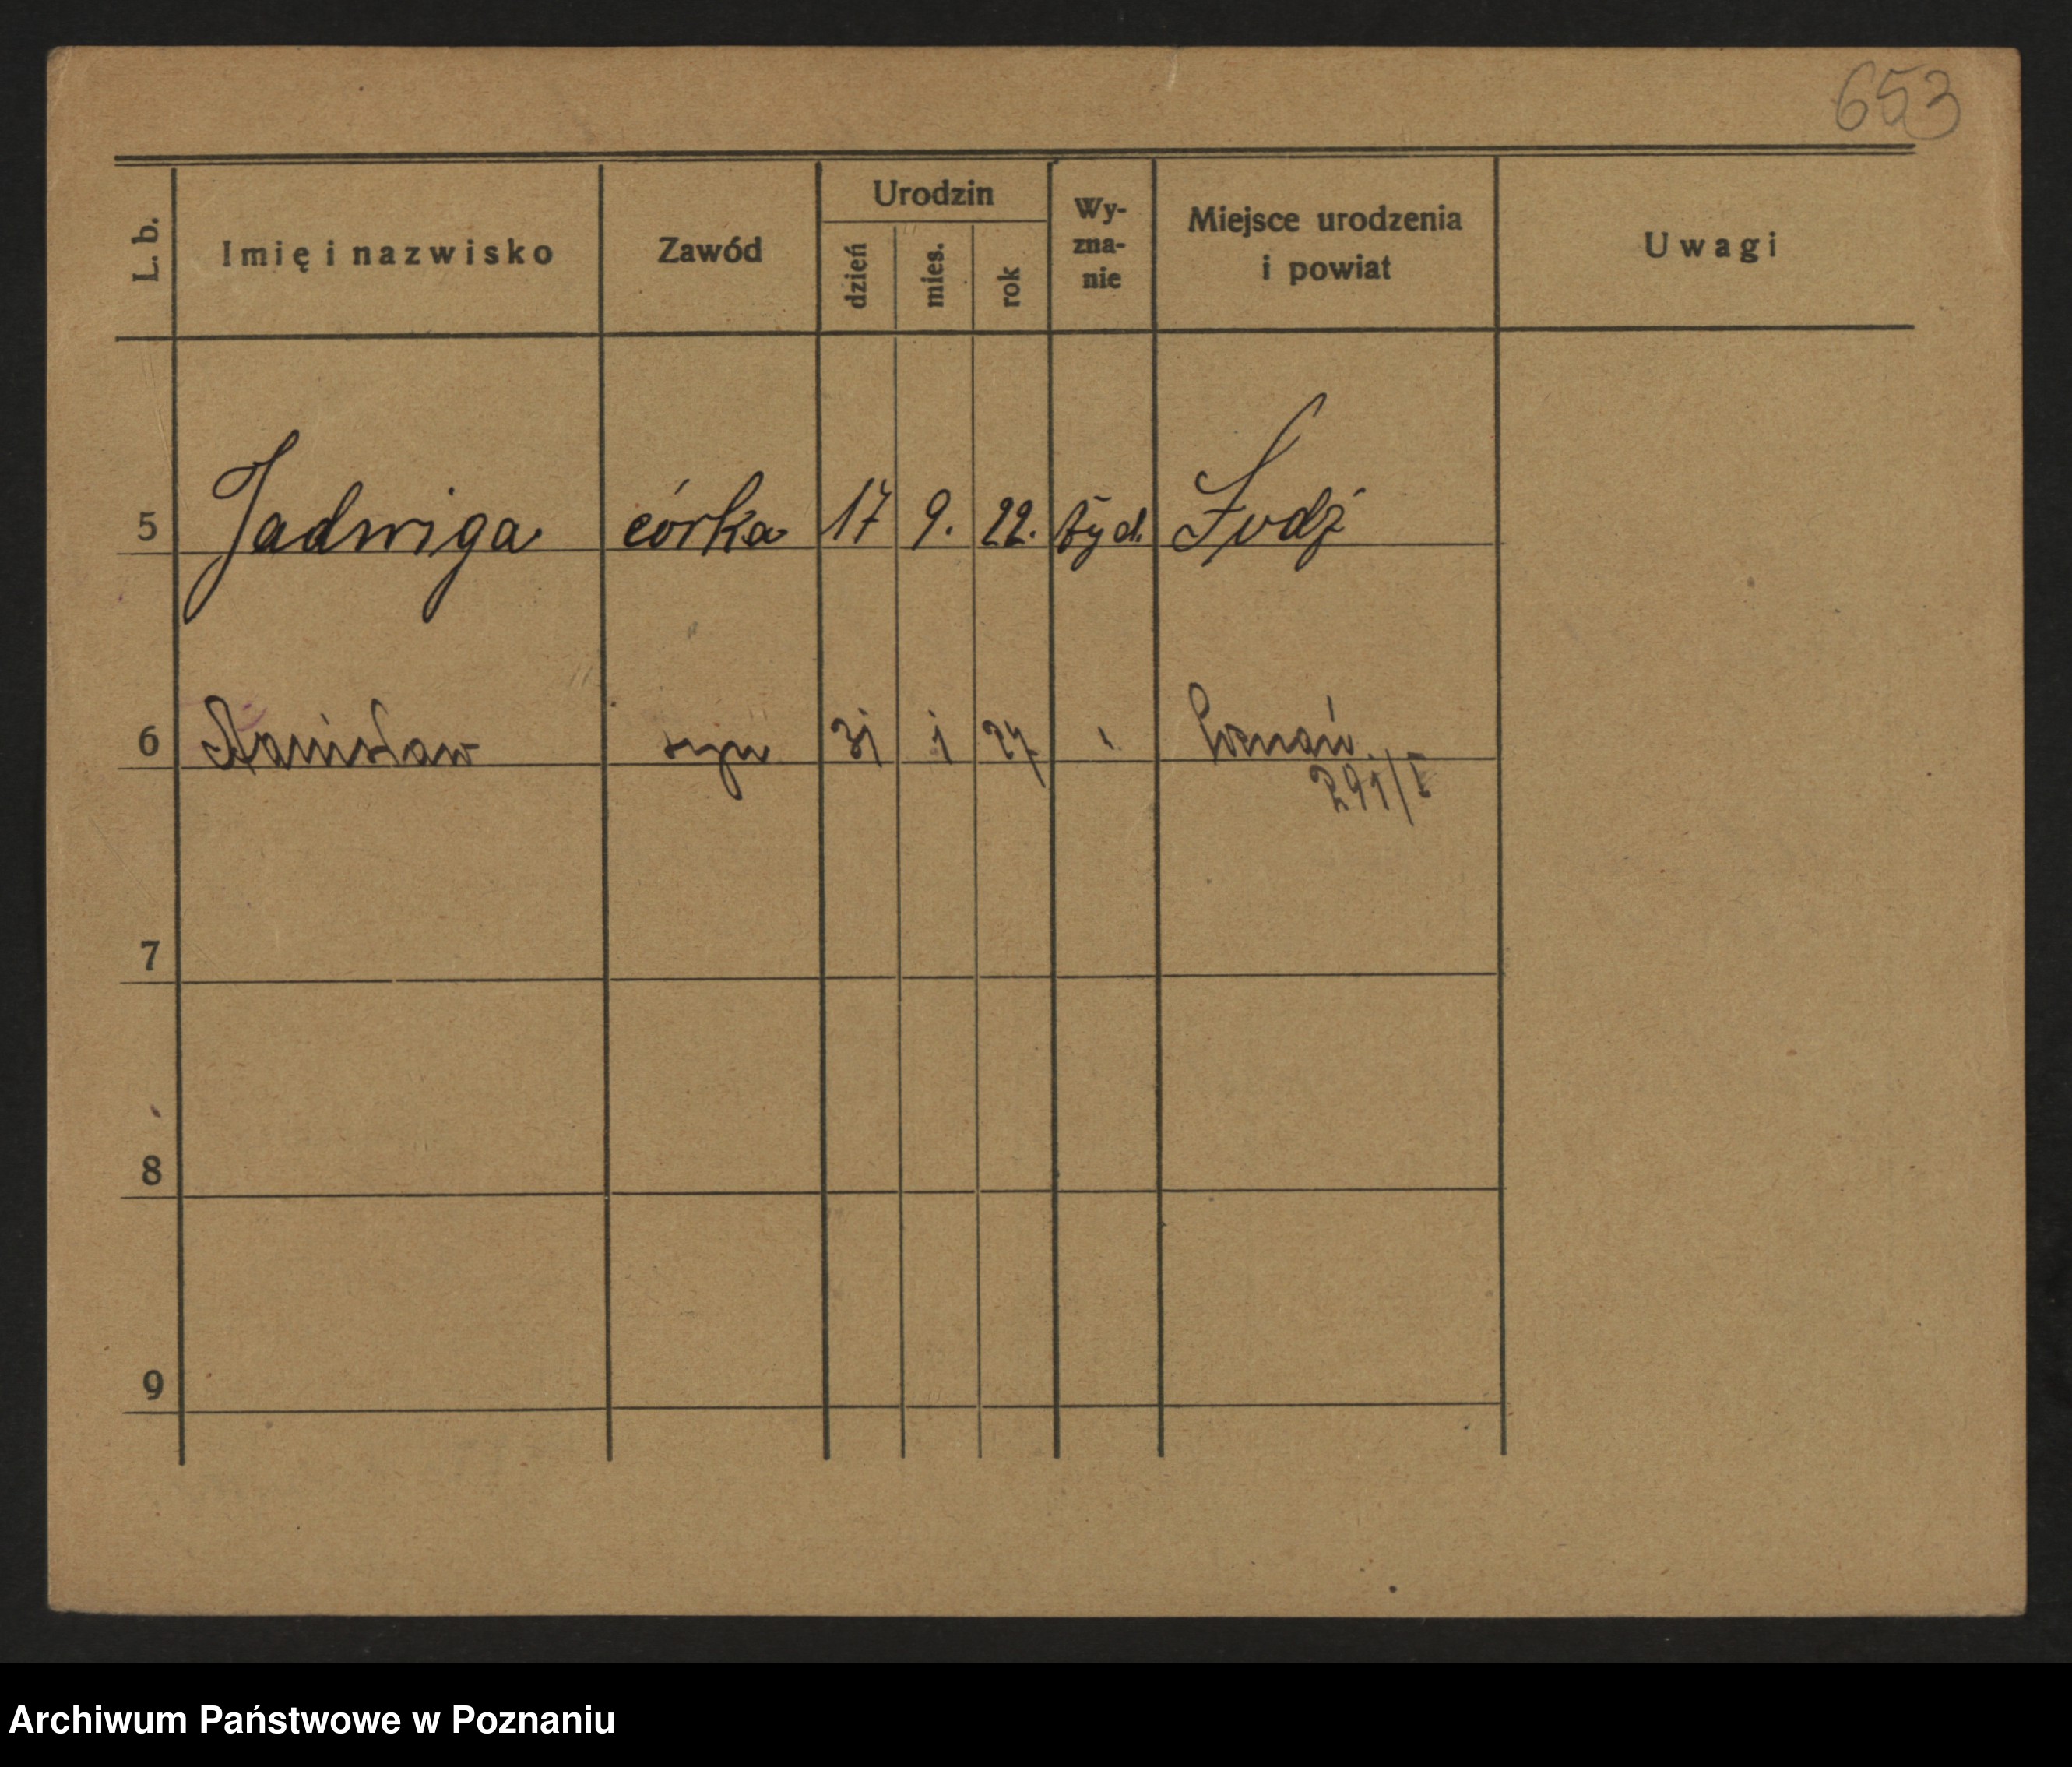 653
L. b. Imię i nazwisko Zawód Urodzin dzień mies. rok Wy-zna-nie Miejsce urodzenia i powiat Uwagi
5 Jadwiga córka 17 9. 22. żyd. Łódź
6 Stanisław syn 31 1 27 " Poznań
291/I
7
8
9
Archiwum Państwowe w Poznaniu